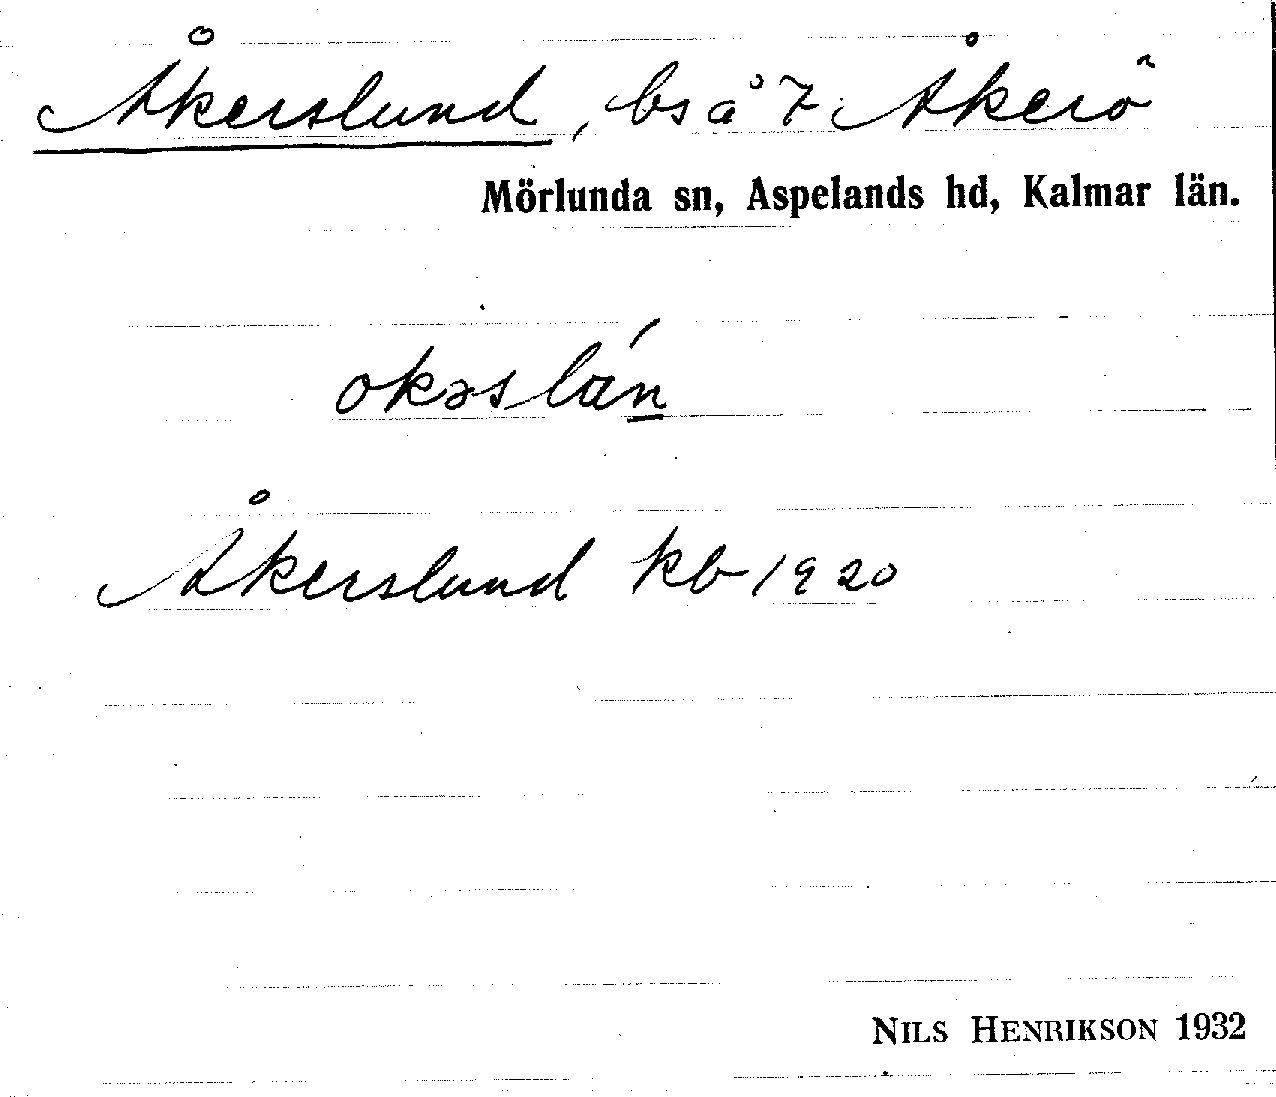 Åkerslund, bs å 7 Åkerö
Mörlunda sn, Aspelands hd, Kalmar län.
okəslán
Åkerslund kb 1920
NILS HENRIKSON 1932